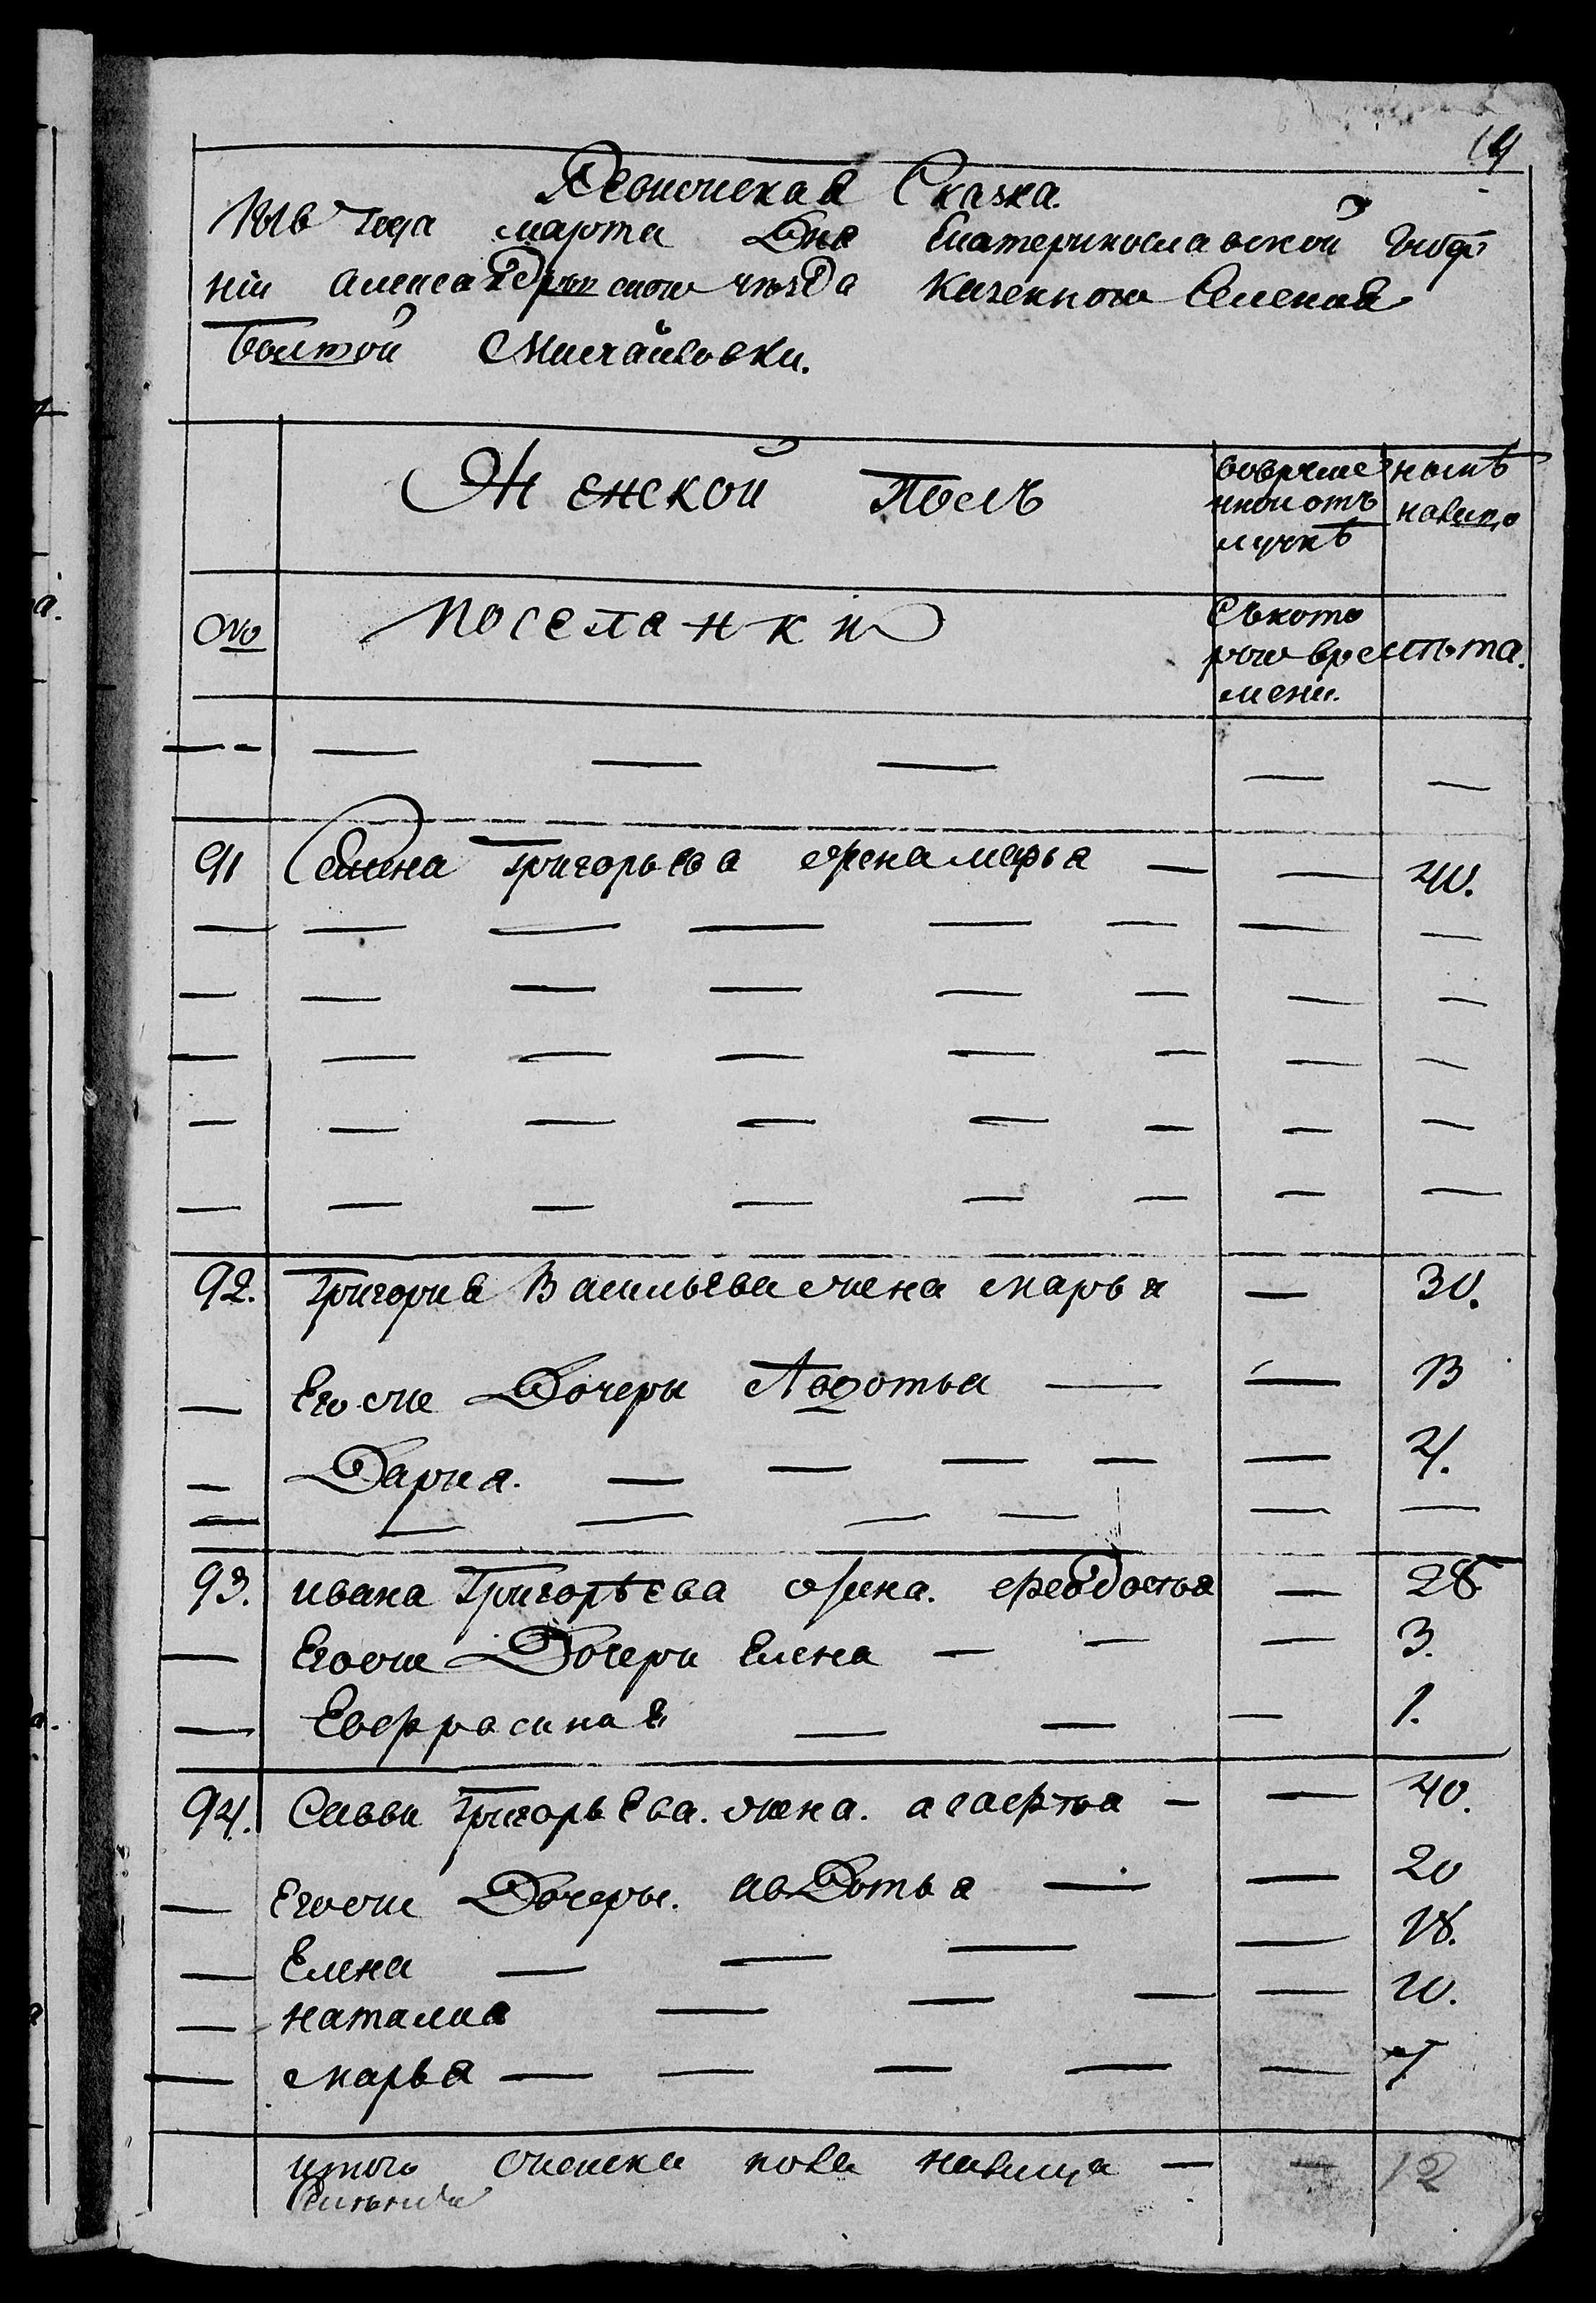 19
Ревизская Сказка.
1816 года марта Дня Екатеринославской Губер
нии александровского уезда Казенного Селения
болшой Михайловки.
Женской Полъ
вовреме
нной отъ
лучкѣ
нынѣ
налицо
№
поселянки
Съкото
рого вре
мени.
лѣта.
91 Семена Григорьева жена марья — — 40.
92. Григория Васильева жена марья — 30.
— Его же Дочери Авдотья — — 13
— Дария. — — — — — 4.
93. ивана Григорьева жена. феодосья — 28
— Егоже Дочери Елена — — — 3.
— Евфросиная — — — 1.
94. Саввы Григорьева. жена. агафья — — 40.
— Егоже Дочери. авДотья — — 20
— Елена — — — — 18.
— наталия — — — — 10.
— марья — — — — — 7
итого женска пола налицо — — 12